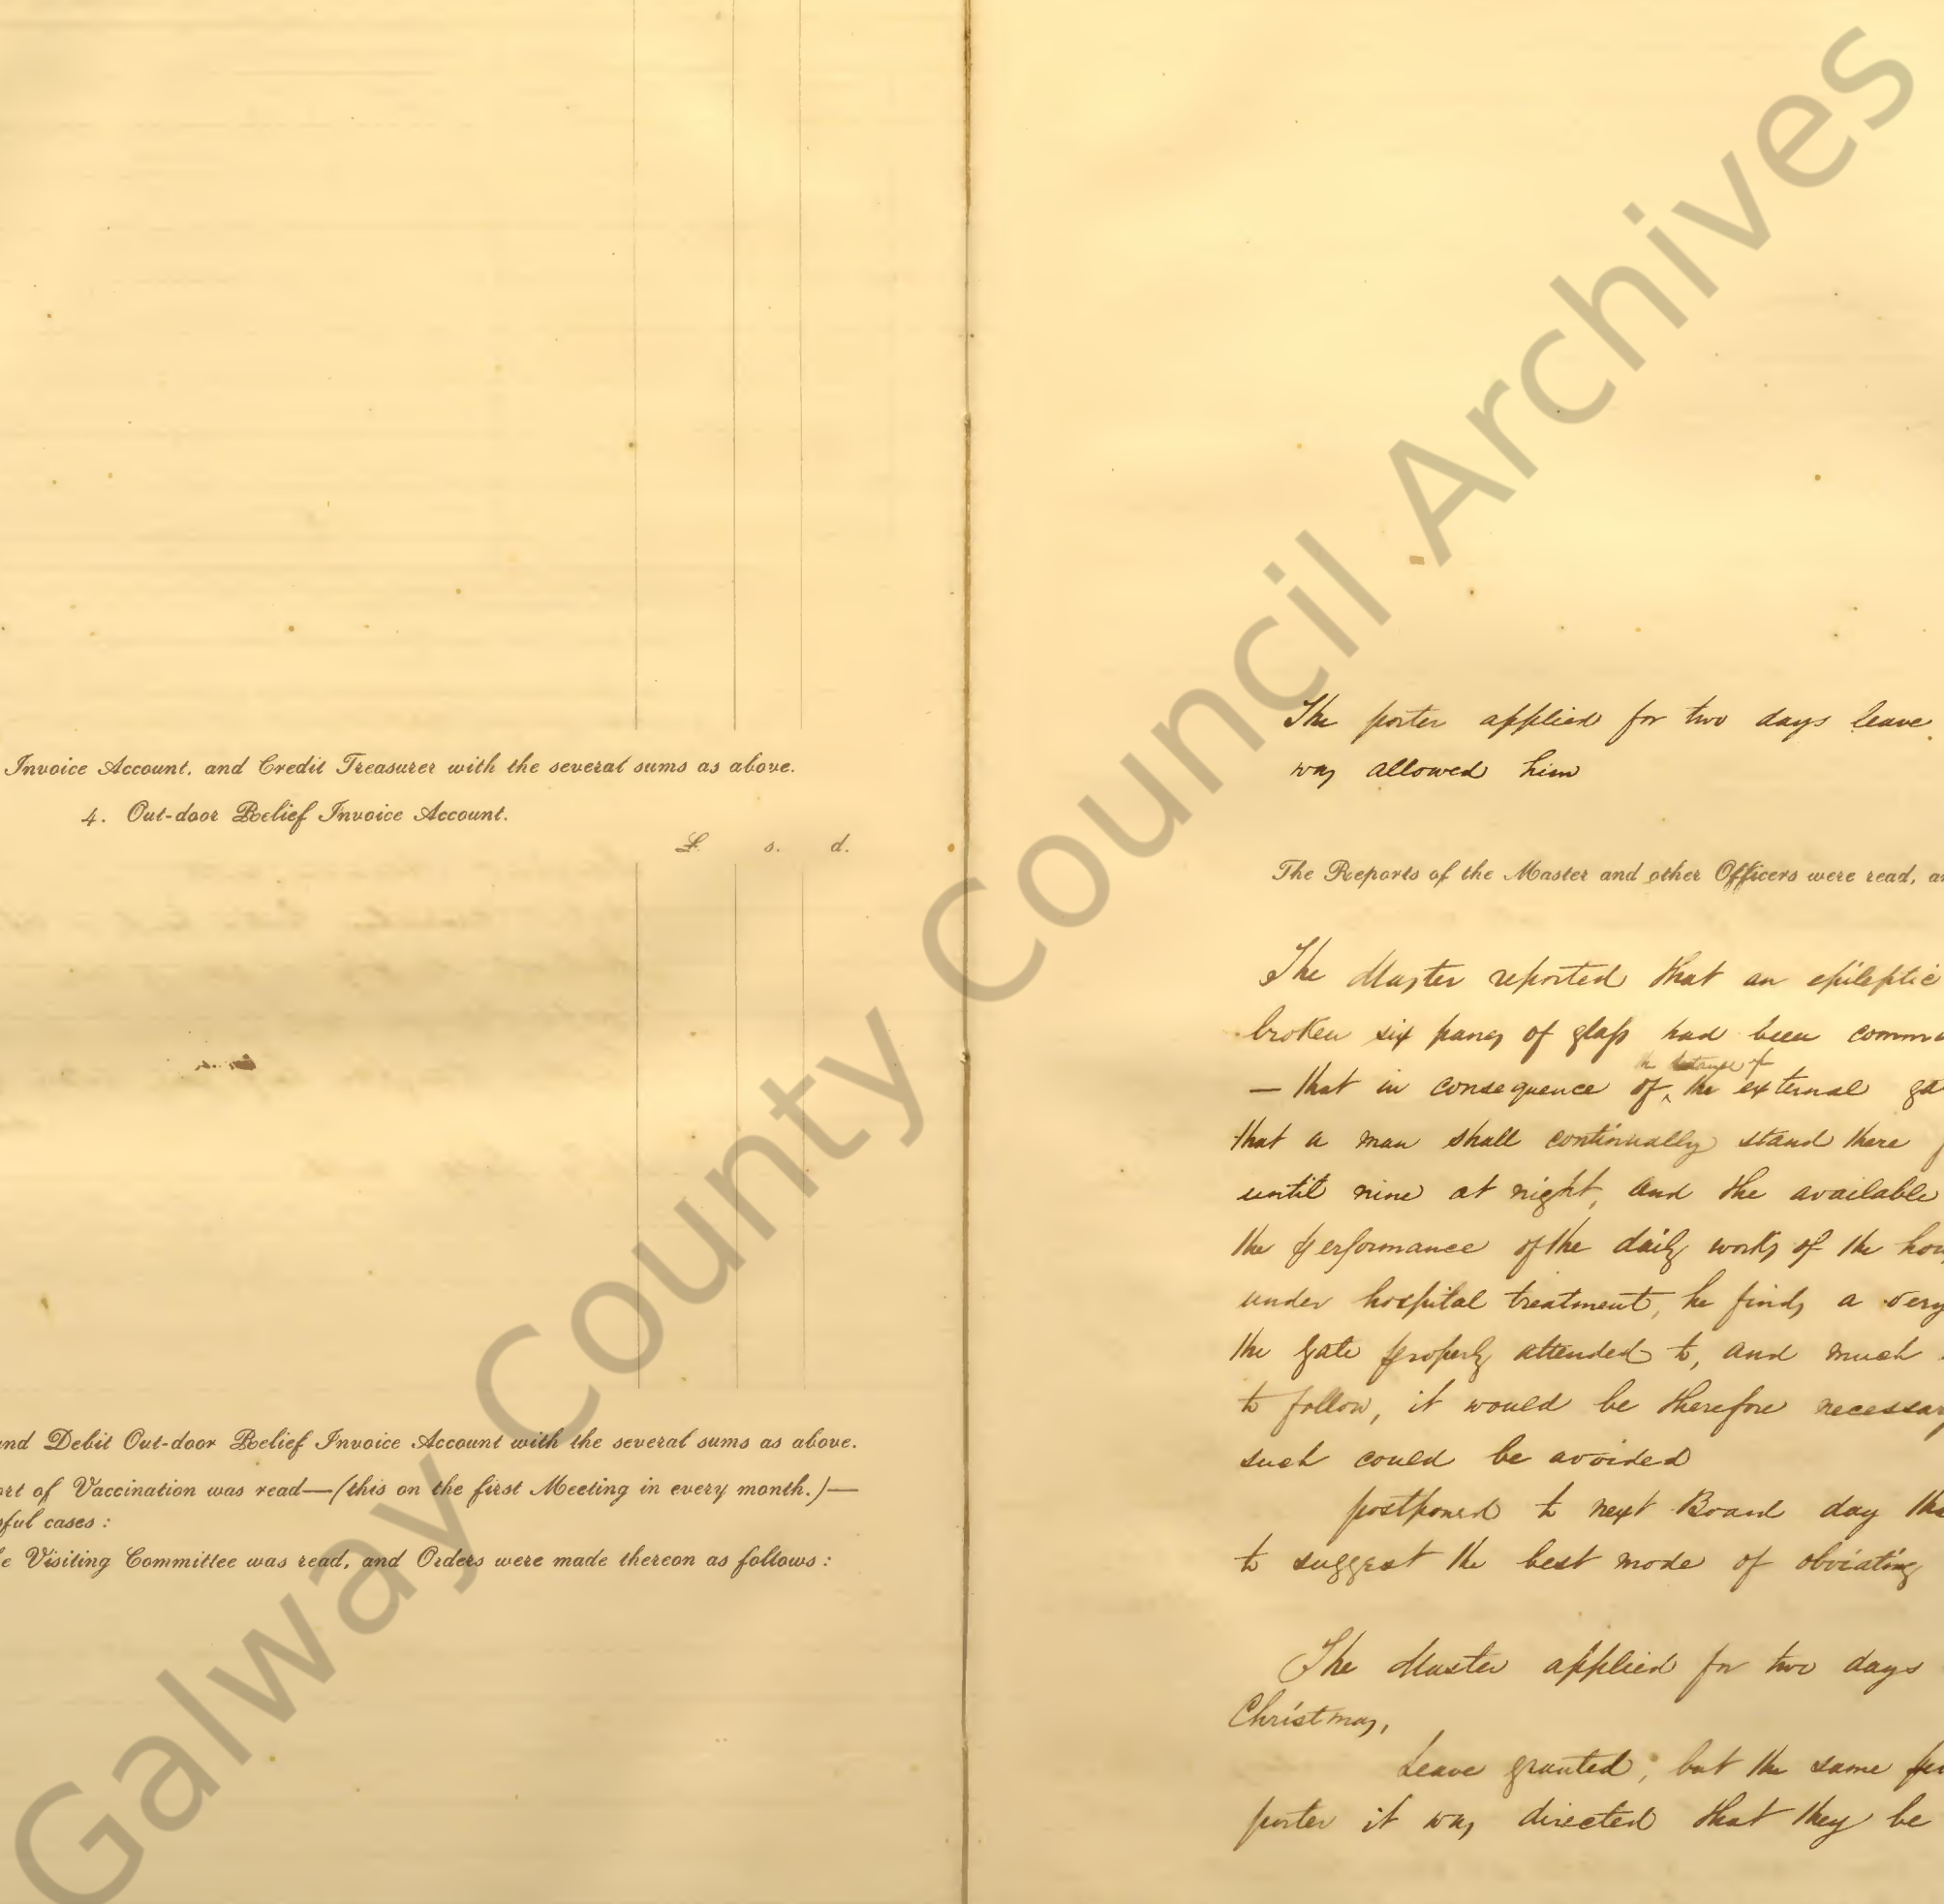 Invoice Account, and Credit Treasurer with the several sums as above.
4. Out-door Relief Invoice Account.
£ s. d.
and Debit Out-door Relief Invoice Account with the several sums as above.
of Vaccination was read—(this on the first Meeting in every month.)—
cases :
Visiting Committee was read, and Orders were made thereon as follows :
The porter applied for two days leave
was allowed him
The Reports of the Master and other Officers were read,
The Master reported that an epileptic
broken six panes of glass had been
the distance of
— that in consequence of ‸ the external
that a man shall continually stand there
until nine at night, and the available
the performance of the daily works of the
under hospital treatment, he finds a very
the gate properly attended to, and much
to follow, it would be therefore
such could be avoided
postponed to next Board day
to suggest the best mode of obviating
The Master applied for two days
Christmas,
Leave granted, but the same
porter it was directed that they be
Galway County Council Archives